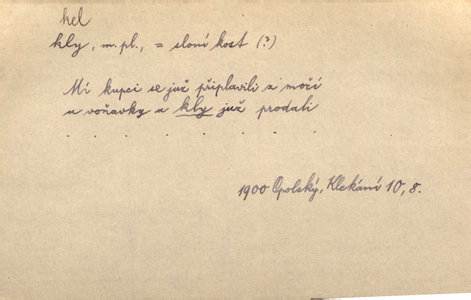 kel
kly, m. pl., = sloní kost (?)
Mí kupci se již připlavili z moří
a voňavky a kly již prodali
. . . . . . . .
1900 Opolský, Klekání 10, 8.